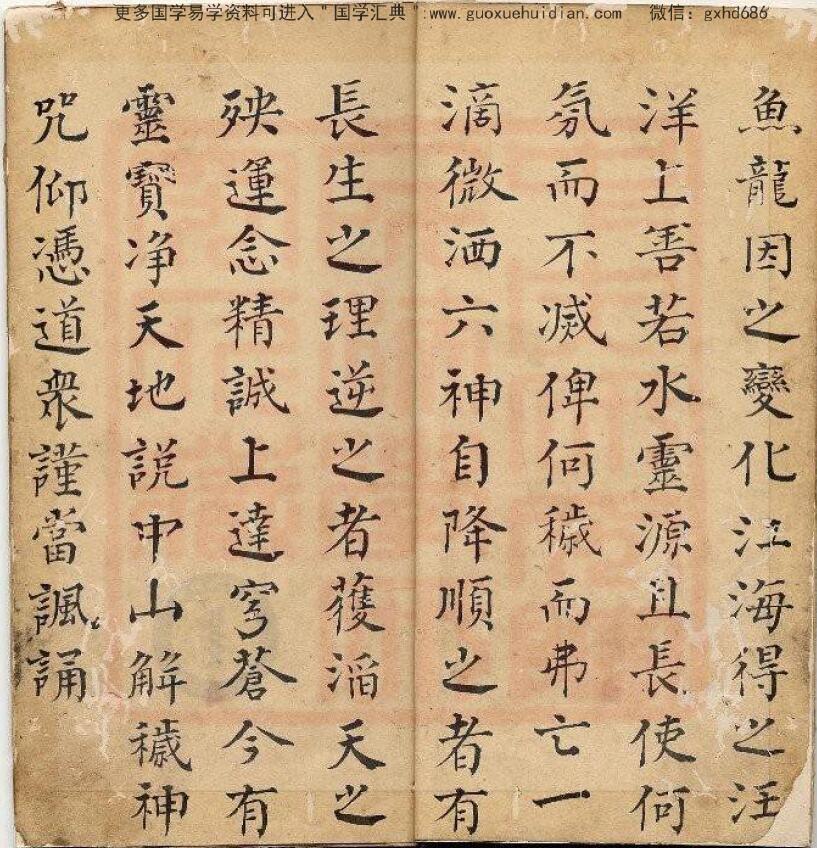 更多国学易学资料可进入＂国学汇典＂:www.guoxuehuidian.com 微信：gxhd686
魚龍因之變化江海得之汪
洋上善若水靈源且長使何
氛而不滅俾何穢而弗亡一
滴微洒六神自降順之者有
長生之理逆之者獲滔天之
殃運念精誠上達穹蒼今有
靈寶净天地説中山解穢神
咒仰憑道衆謹當諷誦